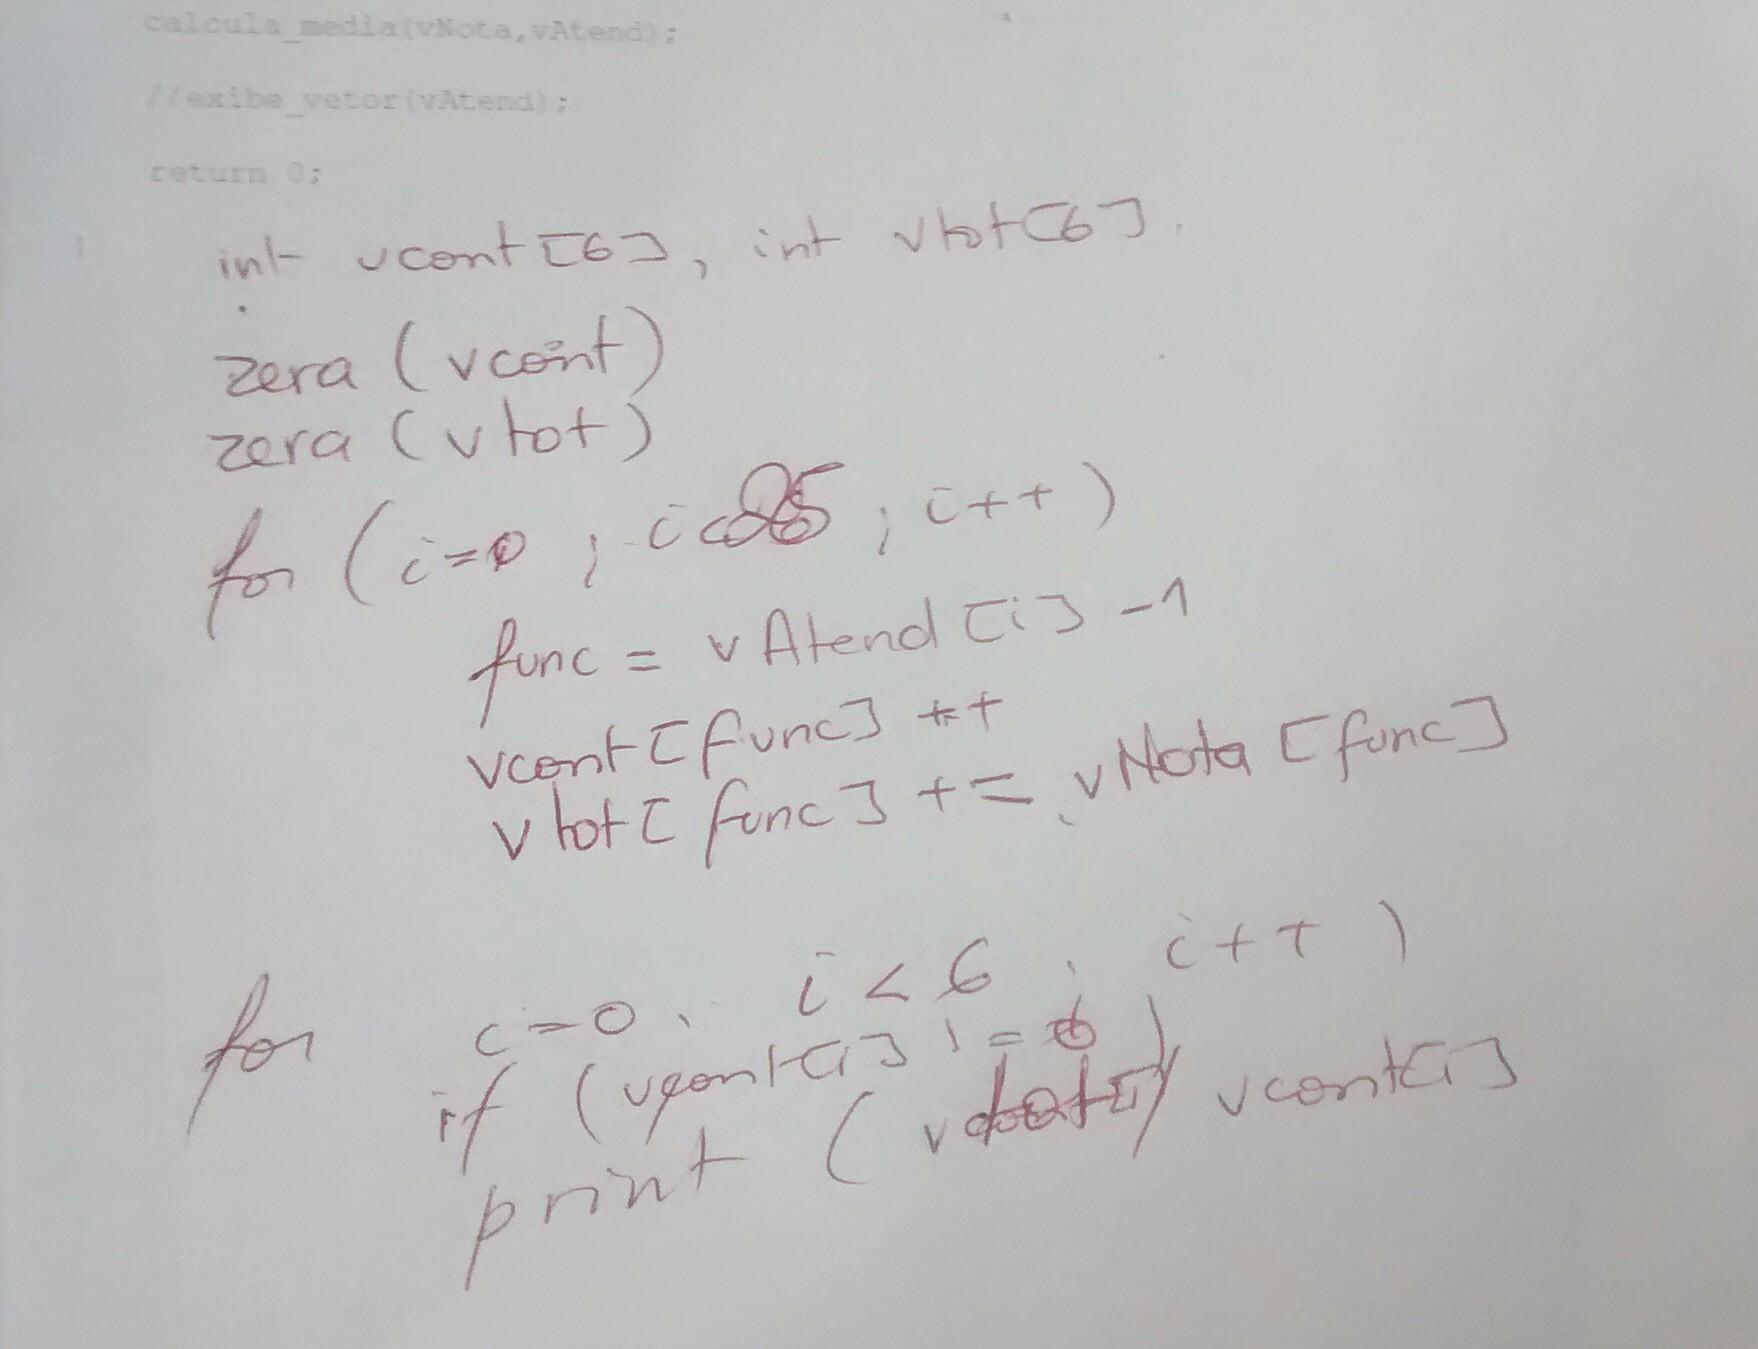 calcula_media(vNota,vAtend);
//exibe_vetor(vAtend);
return 0;
int vcont[6], int vtot[6].
zera (vcont)
zera (vtot)
for (i=0 ; i< ; i++)
func = vAtend[i] -1
vcont[func] ++
vtot[func] += vNota[func]
for i=0, i<6, i++)
if (vcont[i] != 0)
print ( vcont[i]